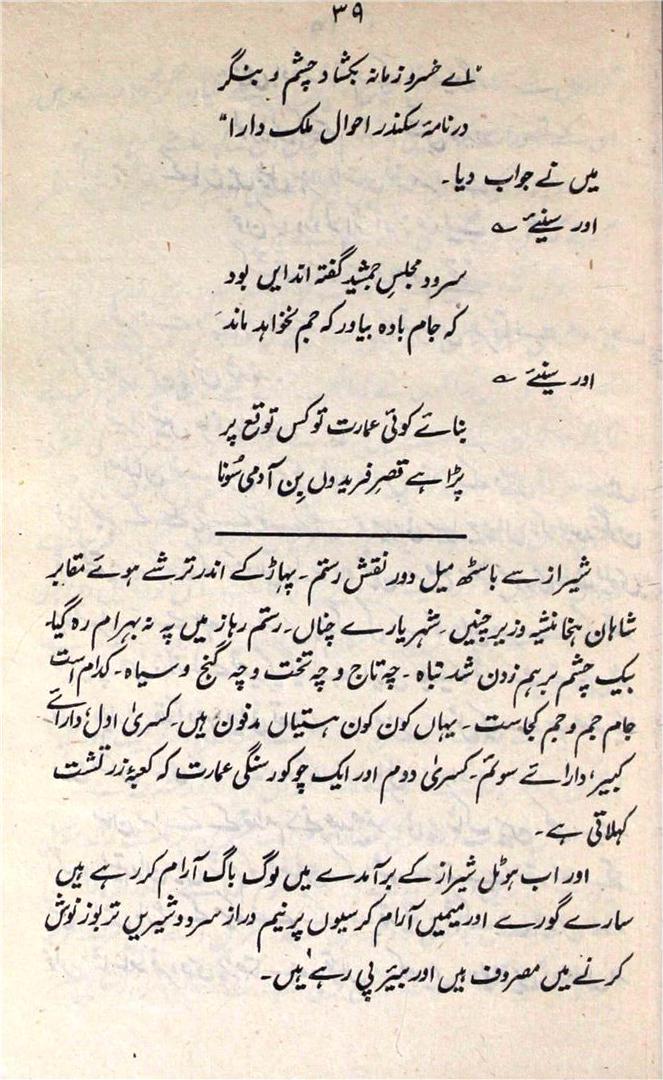 ۳۹
"اے خسرو زمانہ بکشا دچشم و بنگر
درنامۂ سکندر احوال ملک دارا"
میں نے جواب دیا۔
اور سنیئے ؎
سرود مجلسِ جمشید گفتہ اندایں بود
کہ جام بادہ بیاور کہ جم نخواہد ماند
اور سینئے ؎
بنائے کوئی عمارت تو کس توقع پر
پڑا ہے قصرِ فریدوں بِن آدمی سُونا
شیراز سے باسٹھ میل دور نقش رستم۔ پہاڑ کے اندر ترشے ہوئے مقابر
شاہان ہخا نشیہ وزیر چنیں۔ شہریارے چناں۔ رستم رہا نہ میں پہ نہ بہرام رہ گیا۔
بیک چشم برہم زدن شد تباہ۔ چہ تاج و چہ تخت و چہ گنج و سپاہ۔ کدام است
جام جم و جم کجاست۔ یہاں کون کون ہستیاں مدفون ہیں۔ کسریٰ اول، دارائے
کبیر، دارائے سوئم۔ کسریٰ دوم اور ایک چوکور سنگی عمارت کہ کعبۂ زرتشت
کہلاتی ہے۔
اور اب ہوٹل شیراز کے برآمدے میں لوگ باگ آرام کر رہے ہیں
سارے گورے اور میمیں آرام کرسیوں پر نیم دراز سرد و شیریں تربوز نوش
کرنے میں مصروف ہیں اور بیئر پی رہے ہیں۔